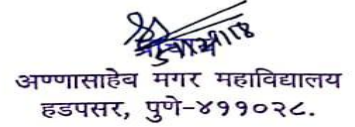 अण्णासाहेब मगर महाविद्यालय
हडपसर, पुणे-४११०२८.